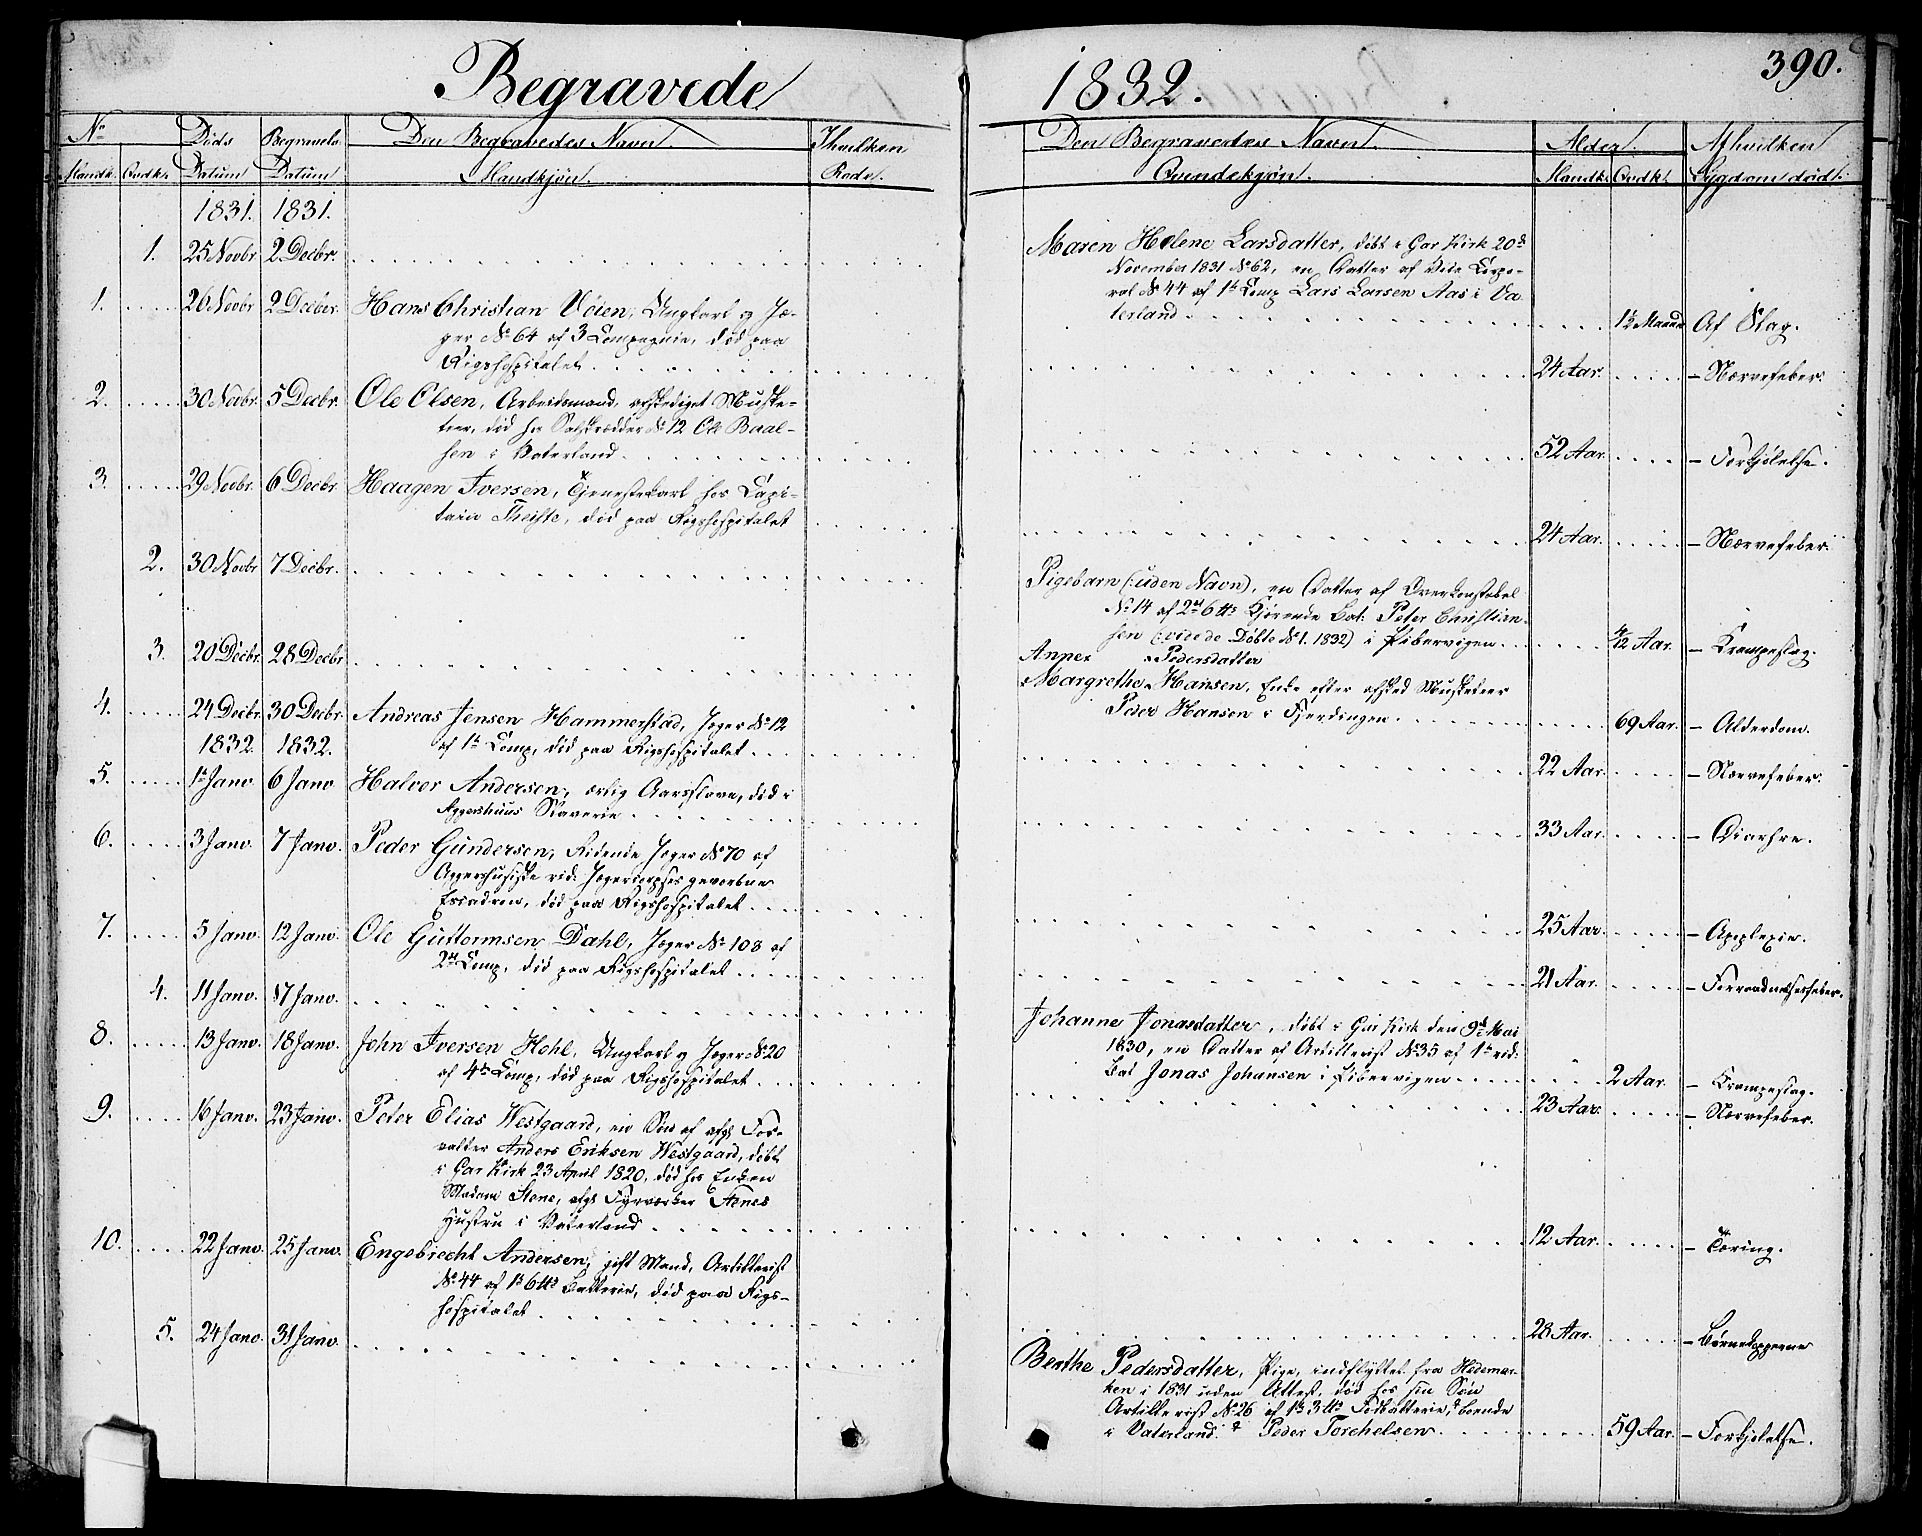 Begravede
1832.
390.
No
Døds
Begravels
Den Begravedes Navn.
I hvilken
Den Begravedes Navn.
Alder.
Af hvilken
Mandk. Qvdk.
Datum
Datum
Mandkjön.
Rode.
Qvindekjön.
Mandk. Qvdk.
Sygdom död.
1831. 1831.
1. 25 Novbr 2 Decbr.
Maren Helene Larsdatter, døbt i Gar Kirk 20de
November 1831 No 62, en Datter af Vice Corpo-
ral No 44 af 1ste Comp Lars Larsen Aas i Va-
terland
1½ Maaned Af Slag.
1. 26 Novbr 2 Decbr. Hans Christian Vöien, Ungkarl og Jæ-
ger No 64 af 3 Compagnie, död paa
Rigshospitalet
24 Aar. - Nærvefeber.
2. 30 Novbr. 5 Decbr. Ole Olsen, Arbeidsmand, afskediget Muske-
teer, död hos No 12 Ole Baal-
sen i Vaterland
52 Aar. - Forkjölelse.
3. 29 Novbr. 6 Decbr Haagen Iversen, Tjenestekarl hos Capi-
tain Theiste, död paa Rigshospitalet
24 Aar. - Nærvefeber.
2. 30 Novbr 7 Decbr.
Pigebarn (: uden Navn), en Datter af Overkonstabel
No 14 af 2det 6 ℔s Kjörende Bat: Peter Christian-
sen (: vide de Döbte No 1. 1832) i Pibervigen
4/12 Aar. - Krampeslag.
3. 20 Decbr. 28 Decbr
Anne Pedersdatter
Margrethe Hansen, Enke efter afsked Musketeer
Peder Hansen i Fjerdingen
69 Aar. - Alderdom.
4. 24 Decbr. 30 Decbr. Andreas Jensen Hammerstad, Jæger No 12
af 1ste Comp, död paa Rigshospitalet
22 Aar. - Nærvefeber.
1832. 1832.
5. 1ste Janv. 6 Janv Halvor Andersen, ærlig Aarsslave, död i
Aggershuus Slaverie
33 Aar. - Diarhre.
6. 3 Janv. 7 Janv. Peder Gundersen, Ridende Jæger No 70 af
Aggershusiske rid: Jægercorpses gevorbne
Escadron, död paa Rigshospitalet
25 Aar - Apoplexie.
7. 5 Janv. 12 Janv. Ole Guttormsen Dahl, Jæger No 108 af
2den Comp, död paa Rigshospitalet
21 Aar. - Forraadnelsesfeber.
4. 11 Janv. 17 Janv.
Johanne Jonasdatter, döbt i Gar Kirk den 9de Mai
1830, en Datter af Artillerist No 35 af 1ste rid:
Bat Jonas Johansen i Pibervigen
2 Aar. - Krampeslag.
8. 13 Janv. 18 Janv. John Iversen Hohl, Ungkarl og Jæger No 20
af 4de Comp, död paa Rigshospitalet
23 Aar. - Nærvefeber.
9. 16 Janv. 23 Janv. Peter Elias Westgaard, en Sön af afgl For-
valter Anders Eriksen Westgaard, döbt
i Gar Kirk 23 April 1820, död hos Enken
Madam Stene, afgl Fyrværker Stenes
Hustru i Vaterland
12 Aar. - Tæring.
10. 22 Janv. 25 Janv. Engebrecht Andersen, gift Mand, Artillerist
No 44 af 1ste 6 ℔s Batterie, död paa Rigs-
hospitalet
28 Aar. - Börnekopperne
5. 24 Janv. 31 Janv.
Berthe Pedersdatter, Pige, indflyttet fra Hedemar-
ken i 1831 uden Attest, död hos sin Sön
Artillerist No 26 af 1ste 3 ℔s Fodbatterie, boende
i Vaterland. Peder Torchelsen
59 Aar. - Forkjölelse.